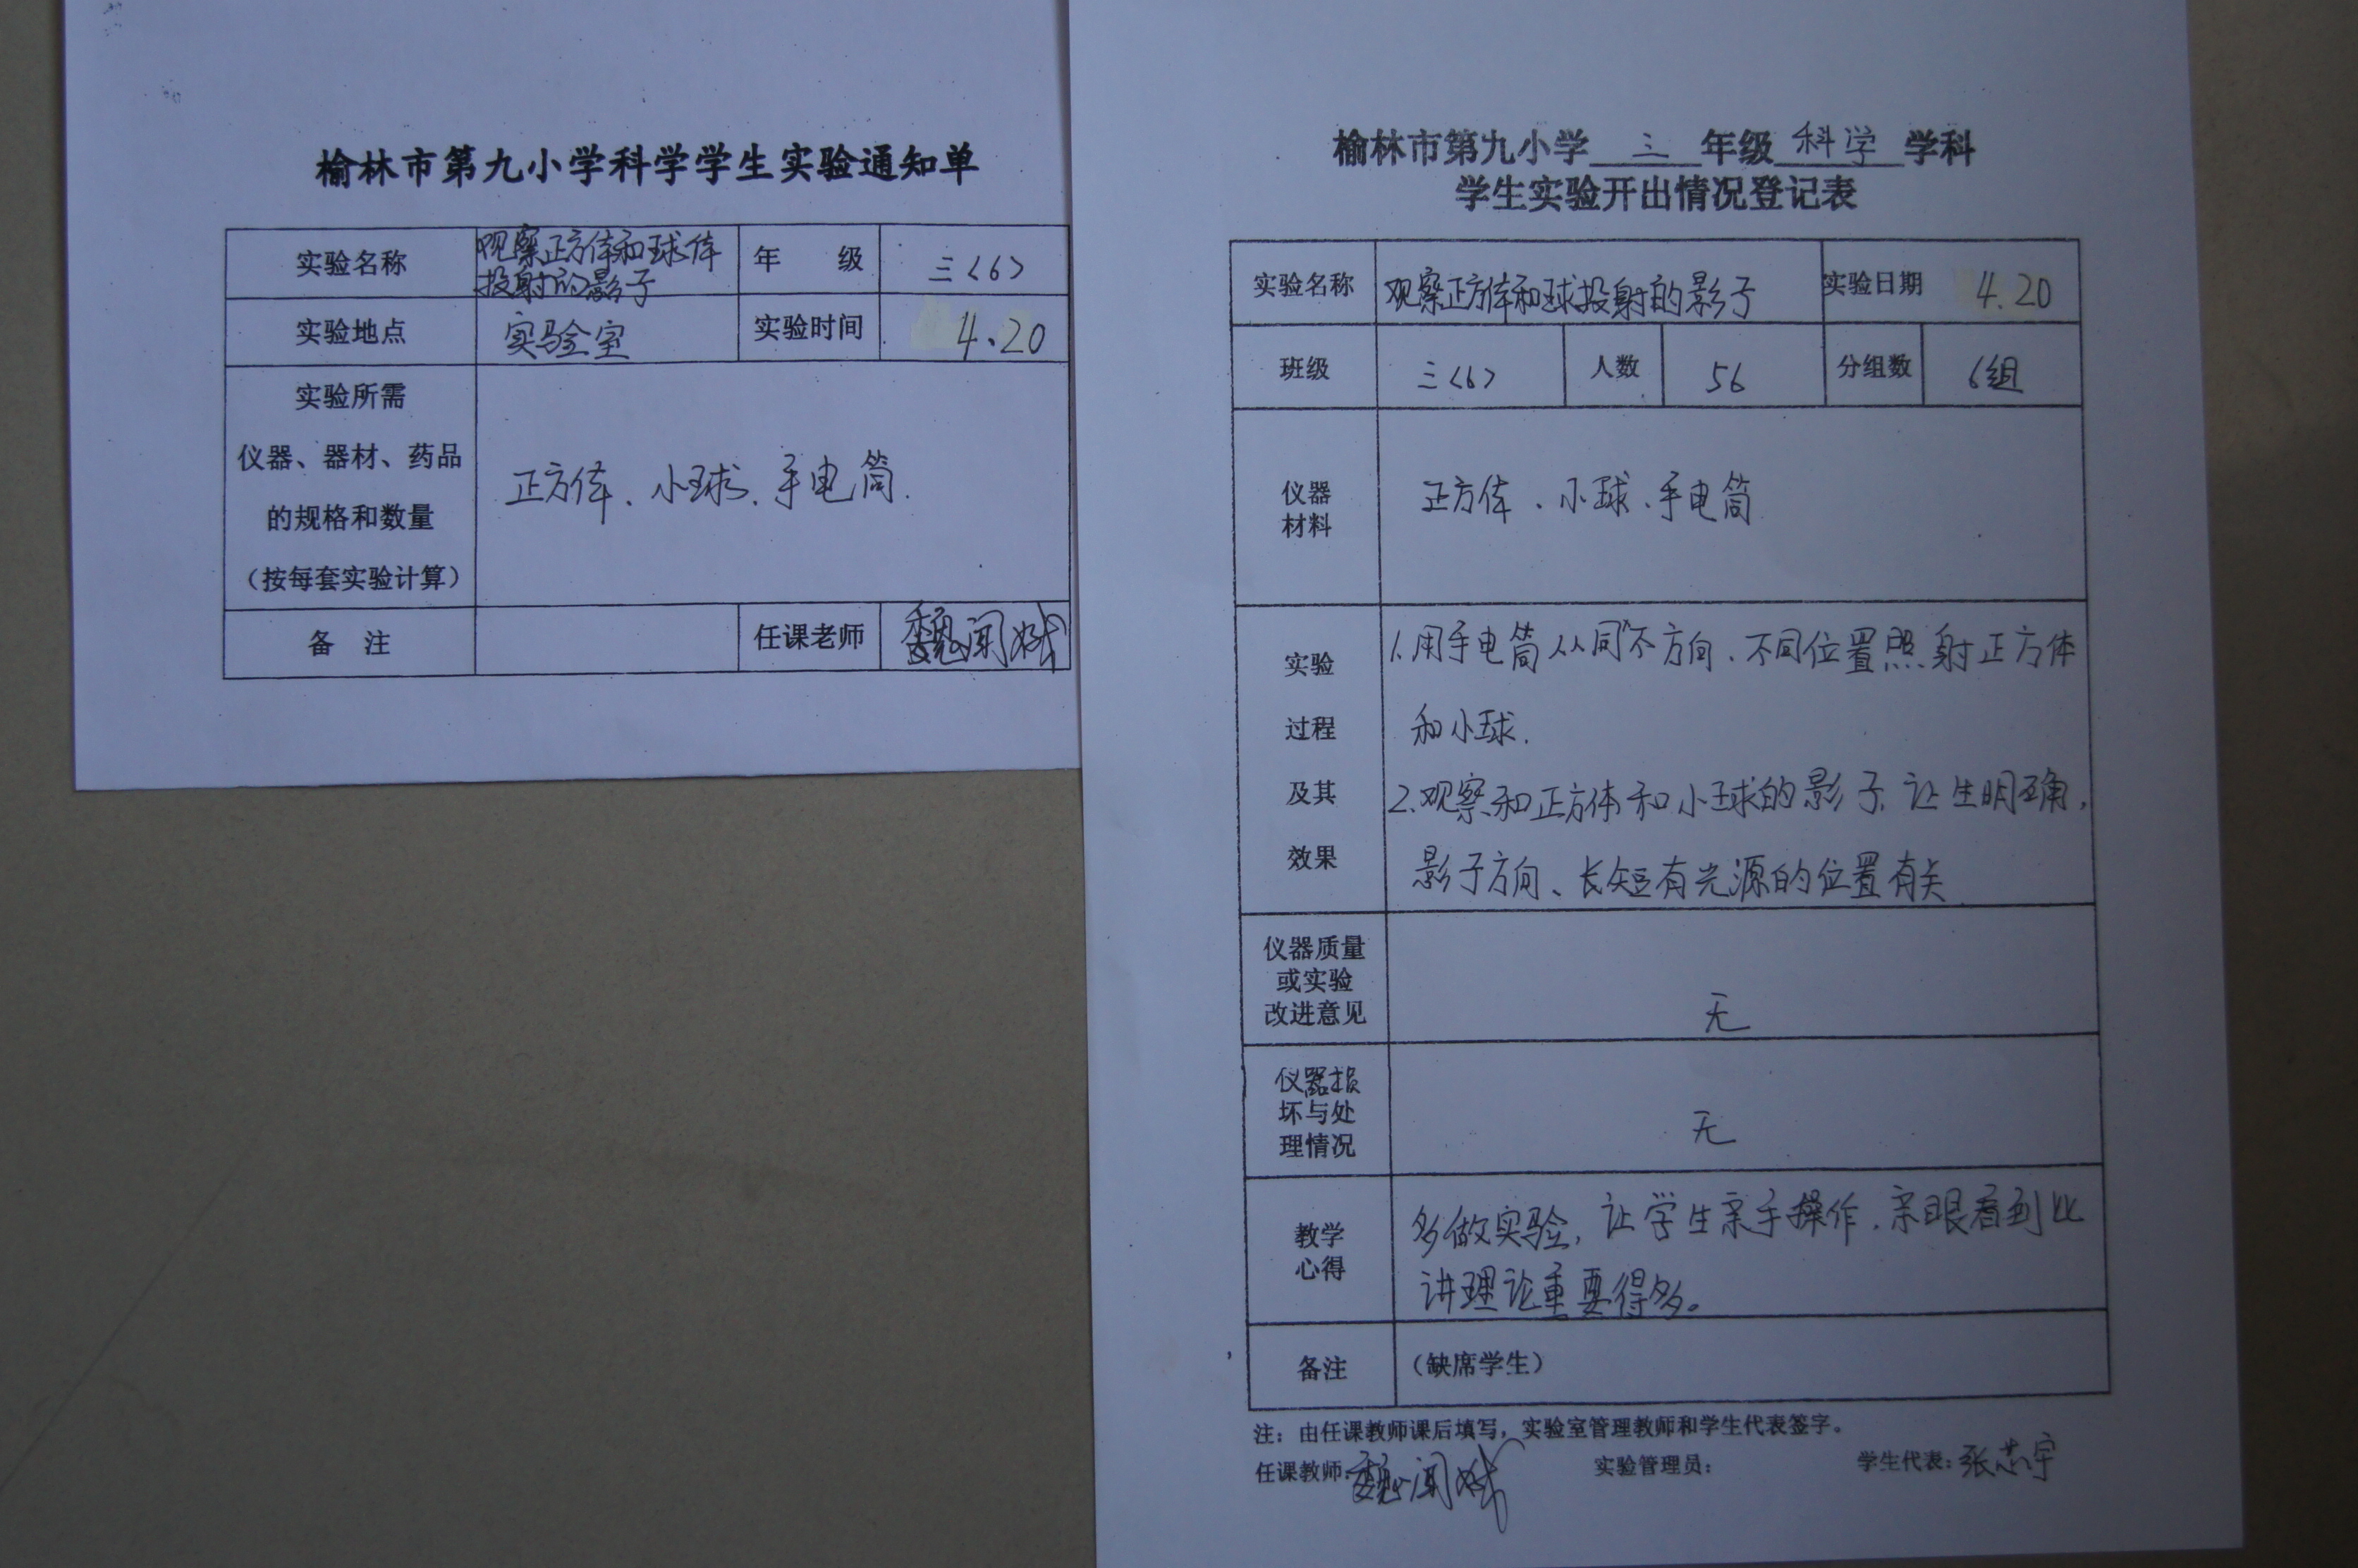 榆林市第九小学科学学生实验通知单
实验名称 观察正方体和球体
投射的影子 年 级 三〈6〉
实验地点 实验室 实验时间 4.20
实验所需
仪器、器材、药品
的规格和数量
（按每套实验计算）
正方体、小球、手电筒.
备 注 任课老师 魏闻
榆林市第九小学 三 年级 科学 学科
学生实验开出情况登记表
实验名称 观察正方体和球投射的影子 实验日期 4.20
班级 三〈6〉 人数 56 分组数 6组
仪器
材料
正方体、小球、手电筒
实验
过程
及其
效果
1.用手电筒从同不方向、不同位置照射正方体
和小球.
2.观察和正方体和小球的影子,让生明确,
影子方向、长短有光源的位置有关
仪器质量
或实验
改进意见
无
仪器损
坏与处
理情况
无
教学
心得
多做实验,让学生亲手操作,亲眼看到比
讲理论重要得多。
备注 （缺席学生）
注：由任课教师课后填写，实验室管理教师和学生代表签字。
任课教师: 魏闻 实验管理员: 学生代表: 张芯宇